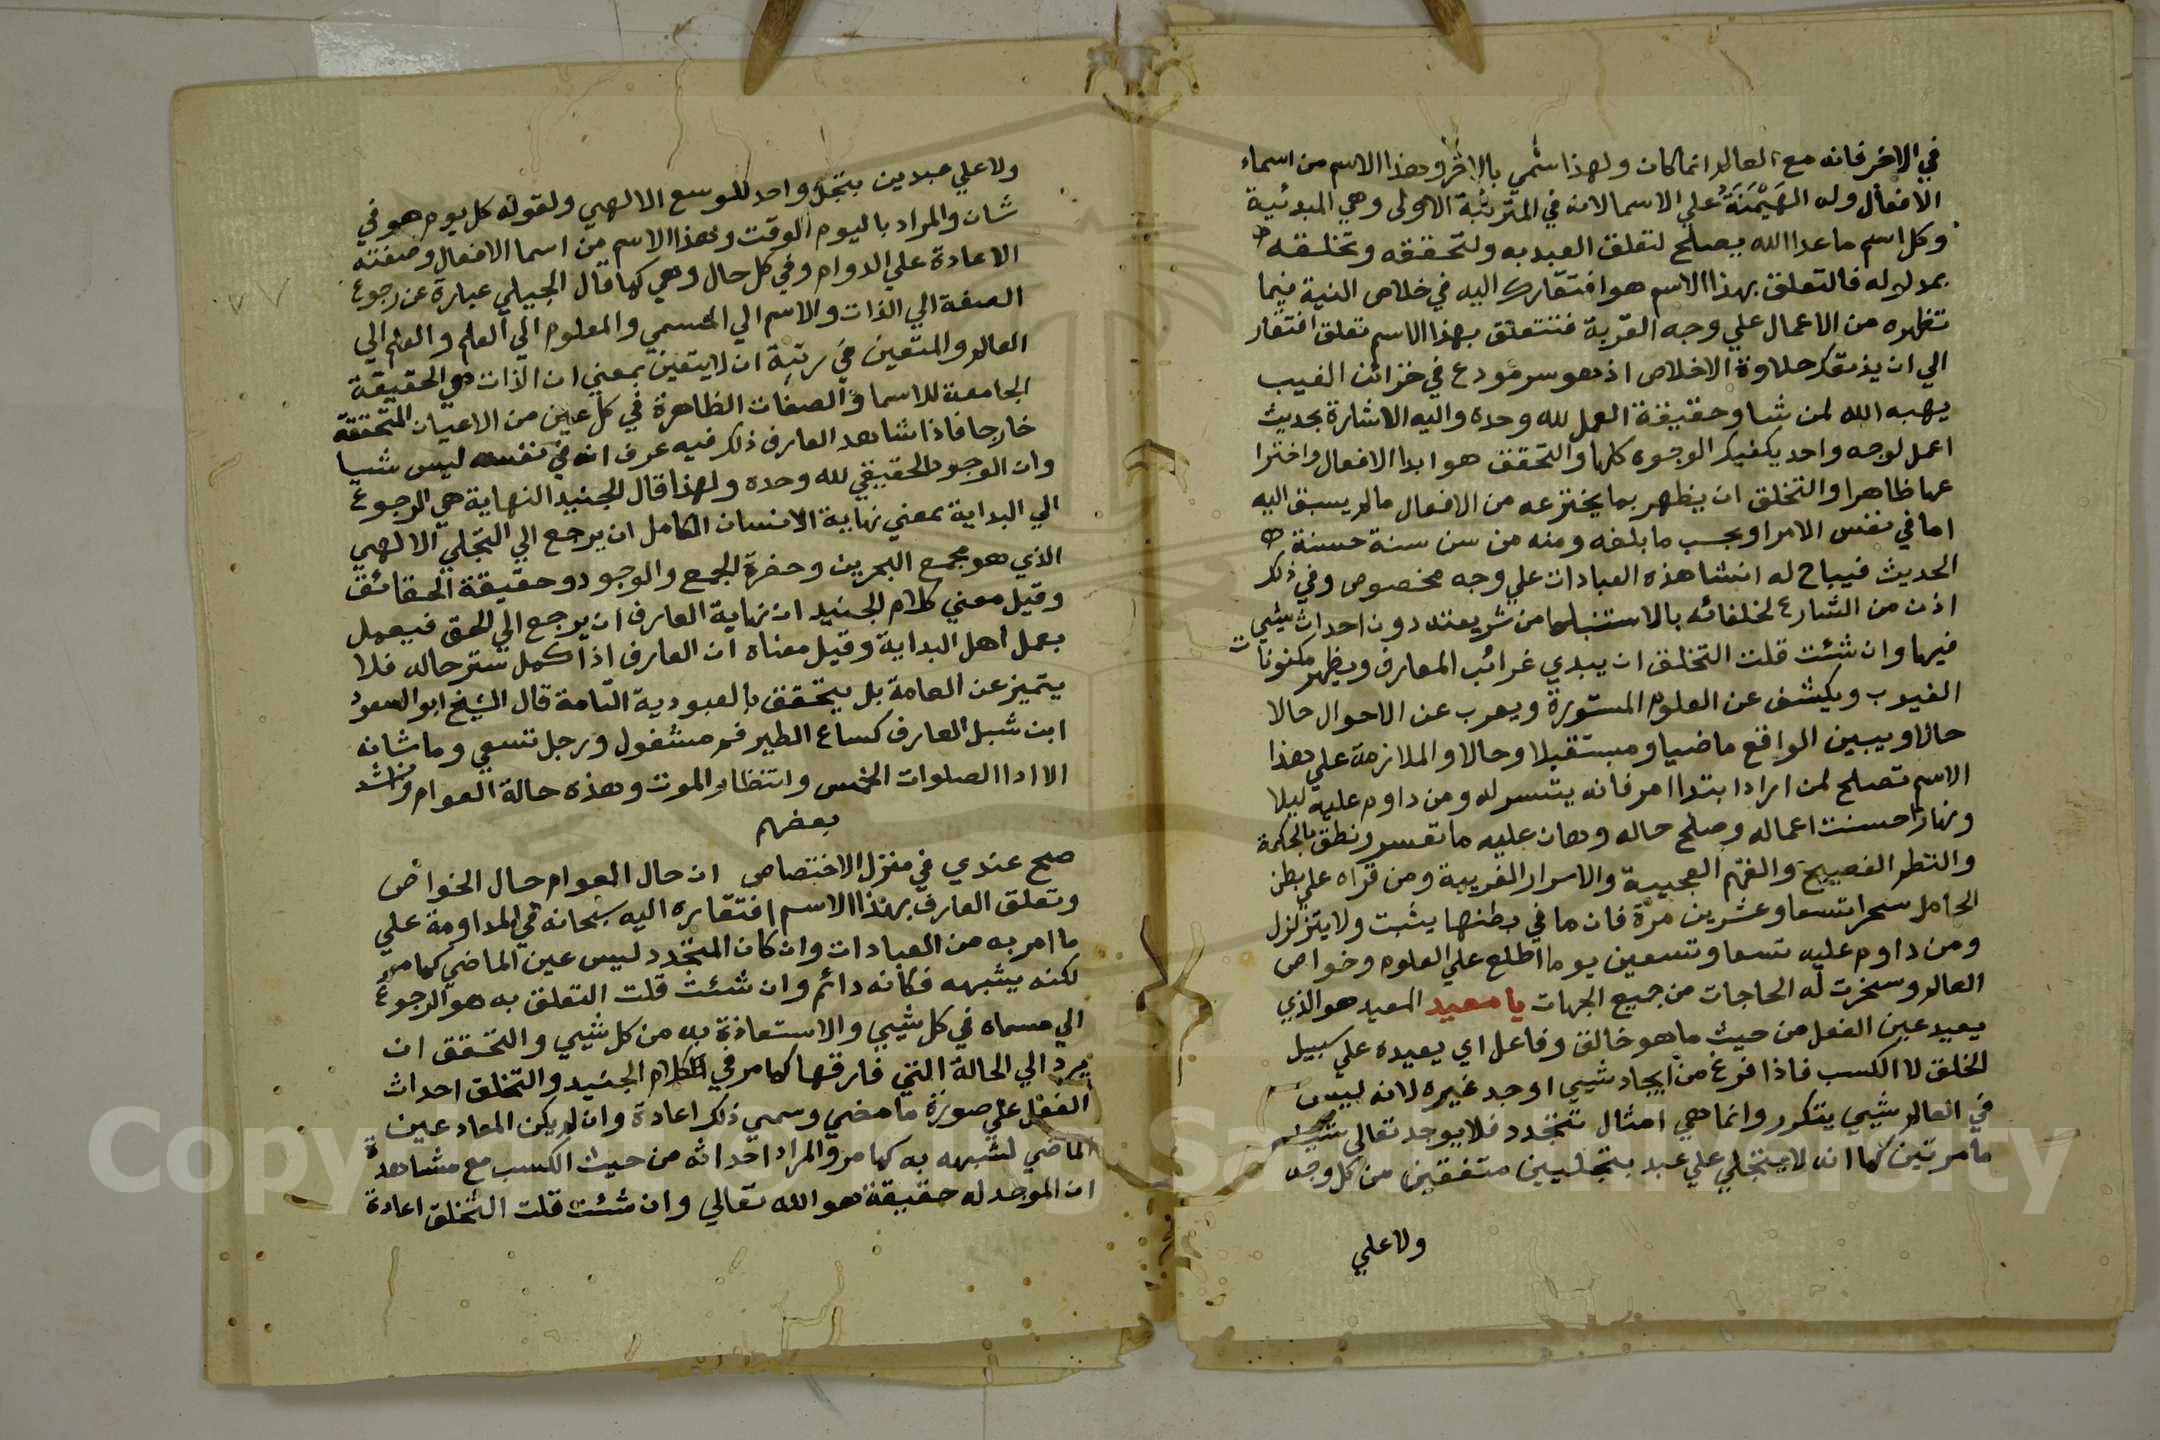 في الاخر فانه مع العالم انما كان ولهذا سمي بالاخر وهذا الاسم من اسماء
الافعال وله الهَيْمَنَةُ علي الاسما لانه في المترتبة الاولى وهي المبدئية
وكل اسم ما عدا الله يصلح لتعلق العبد به ولتحققه وتخلقه
بمدلوله فالتعلق بهذا الاسم هو افتقارك اليه في خلاص النية فيما
تظهره من الاعمال علي وجه القربة فتتعلق بهذا الاسم تعلق افتقار
الي ان يذيقك حلاوة الاخلاص اذ هو سر مودع في خزائن الغيب
يهبه الله لمن شا وحقيقة العمل لله وحده واليه الاشارة بحديث
اعمل لوجه واحد يكفيك الوجوه كلها والتحقق هو ابدا الافعال واخترا
عها ظاهرا والتخلق ان يظهر بما يخترعه من الافعال ما لم يسبق اليه
اما في نفس الامر او بحسب ما بلغه ومنه من سن سنة حسنة
الحديث فيباح له انشا هذه العبادات علي وجه مخصوص وفي ذلك
اذن من الشارع لخلفائه بالاستنباط من شريعته دون احداث شيي
فيها وان شئت قلت التخلق ان يبدي غرائب المعارف ويظهر مكنونات
الغيوب ويكشف عن العلوم المستورة ويعرب عن الاحوال حالا
حالا ويبين الواقع ماضيا ومستقبلا وحالا والملازمة علي هذا
الاسم تصلح لمن اراد ابتدا امر فانه يتسر له ومن داوم عليه ليلا
ونهارا حسنت اعماله وصلح حاله وهان عليه ما تعسر ونطق بالحكمة
والنظر الفصيح والفهم العجيبة والاسرار الغريبة ومن قراه علي بطن
الحامل سحرا تسعا وعشرين مرة فان ما في بطنها يثبت ولا يتزلزل
ومن داوم عليه تسعا وتسعين يوما اطلع علي العلوم وخواص
العالم وسخرت له الحاجات من جميع الجهات يا معيد المعيد هو الذي
يعيد عين الفعل من حيث ما هو خالق وفاعل اي يعيده علي سبيل
الخلق لا الكسب فاذا فرغ من ايجاد شيي اوجد غيره لانه ليس
في العالم شيي يتكرر وانما هي امثال تتجدد فلا يوجد تعالى
ما مرتين كما انه لا يتجلي علي عبد بتجليين متفقين من كل وجه
ولا علي
ولا علي عبدين بتجل واحد للوسع الالهي ولقوله كل يوم هو في
شان والمراد باليوم الوقت وهذا الاسم من اسما الافعال وصفته
الاعادة علي الدوام وفي كل حال وهي كما قال الجيلي عبارة عن رجوع
الصفة الي الذات والاسم الي المسمي والمعلوم الي العلم والعلم الي
العالم والمتعين في رتبة ان لا يتعين بمعني ان الذات هي الحقيقة
الجامعة للاسما والصفات الظاهرة في كل عين من الاعيان المتحققة
خارجا فاذا شاهد العارف ذلك فيه عرف انه في نفسه ليس شيا
وان الوجود الحقيقي لله وحده ولهذا قال الجنيد النهاية هي الرجوع
الي البداية بمعني نهاية الانسان الكامل ان يرجع الي التجلي الالهي
الذي هو مجمع البحرين وحضرة الجمع والوجود وحقيقة الحقائق
وقيل معني كلام الجنيد ان نهاية العارف ان يرجع الي الحق فيعمل
بعمل اهل البداية وقيل معناه ان العارف اذا كمل ستر حاله فلا
يتميز عن العامة بل يتحقق بالعبودية التامة قال الشيخ ابو السعود
ابن شبل العارف كساع الطير فم مشغول ورجل تسعي وما شانه
الا ادا الصلوات الخمس وانتظار الموت وهذه حالة العوام وانشد
بعضهم
صح عندي في منزل الاختصاص ان حال العوام حال الخواص
وتعلق العارف بهذا الاسم افتقاره اليه سبحانه في المداومة علي
ما امر به من العبادات وان كان المتجدد ليس عين الماضي كما مر
لكنه يشبهه فكانه دائم وان شئت قلت التعلق به هو الرجوع
الي مسماه في كل شيي والاستعاذة به من كل شيي والتحقق ان
يرد الي الحالة التي فارقها كما مر في الكلام الجنيد والتخلق احداث
الفعل علي صورة ما مضي وسمي ذلك اعادة وان لم يكن المعاد عين
الماضي لشبهه به كما مر والمراد احداثه من حيث الكسب مع مشاهدة
ان الموجد له حقيقة هو الله تعالي وان شئت قلت التخلق اعادة
Copyright © King Saud University